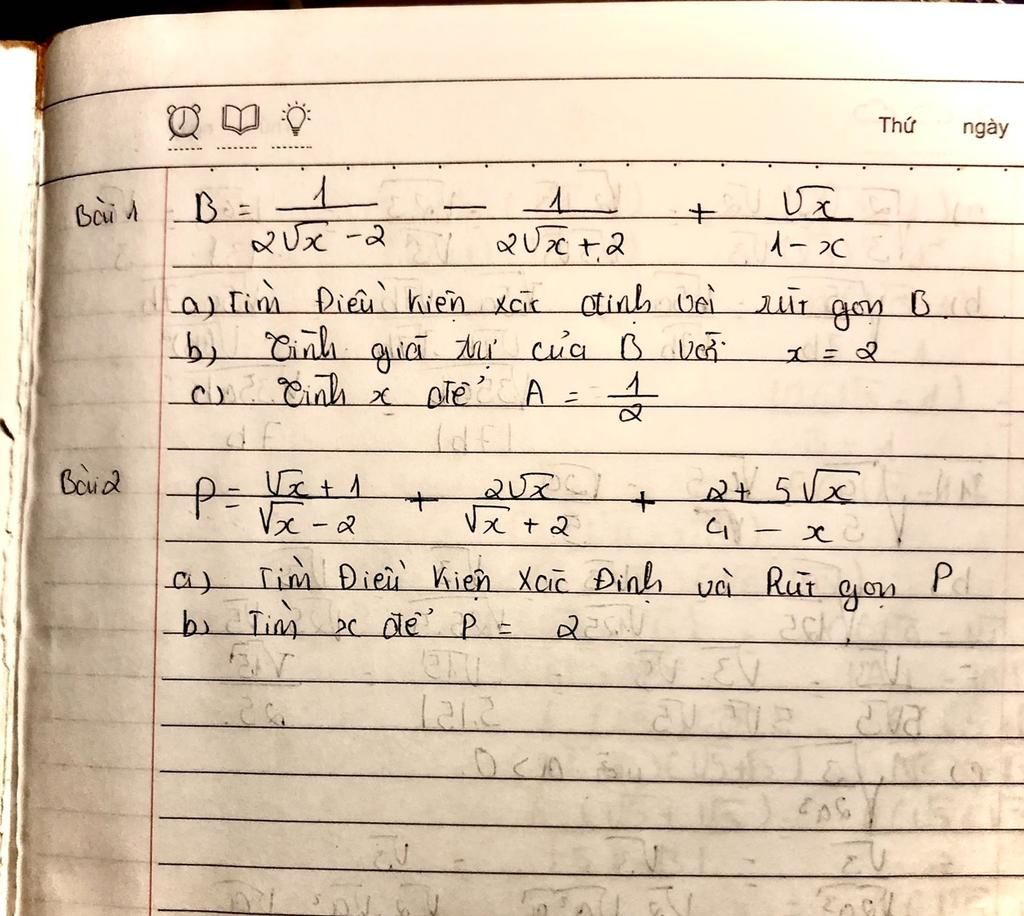 Thứ ngày
Bài 1 B = 1/(2√x - 2) - 1/(2√x + 2) + √x/(1 - x)
a) Tìm Điều kiện xác định và rút gọn B.
b) Tính giá trị của B với x = 2
c) Tính x để A = 1/2
Bài 2 P = (√x + 1)/(√x - 2) + 2√x/(√x + 2) + (2 + 5√x)/(4 - x)
a) Tìm Điều kiện Xác Định và Rút gọn P
b) Tìm x để P = 2